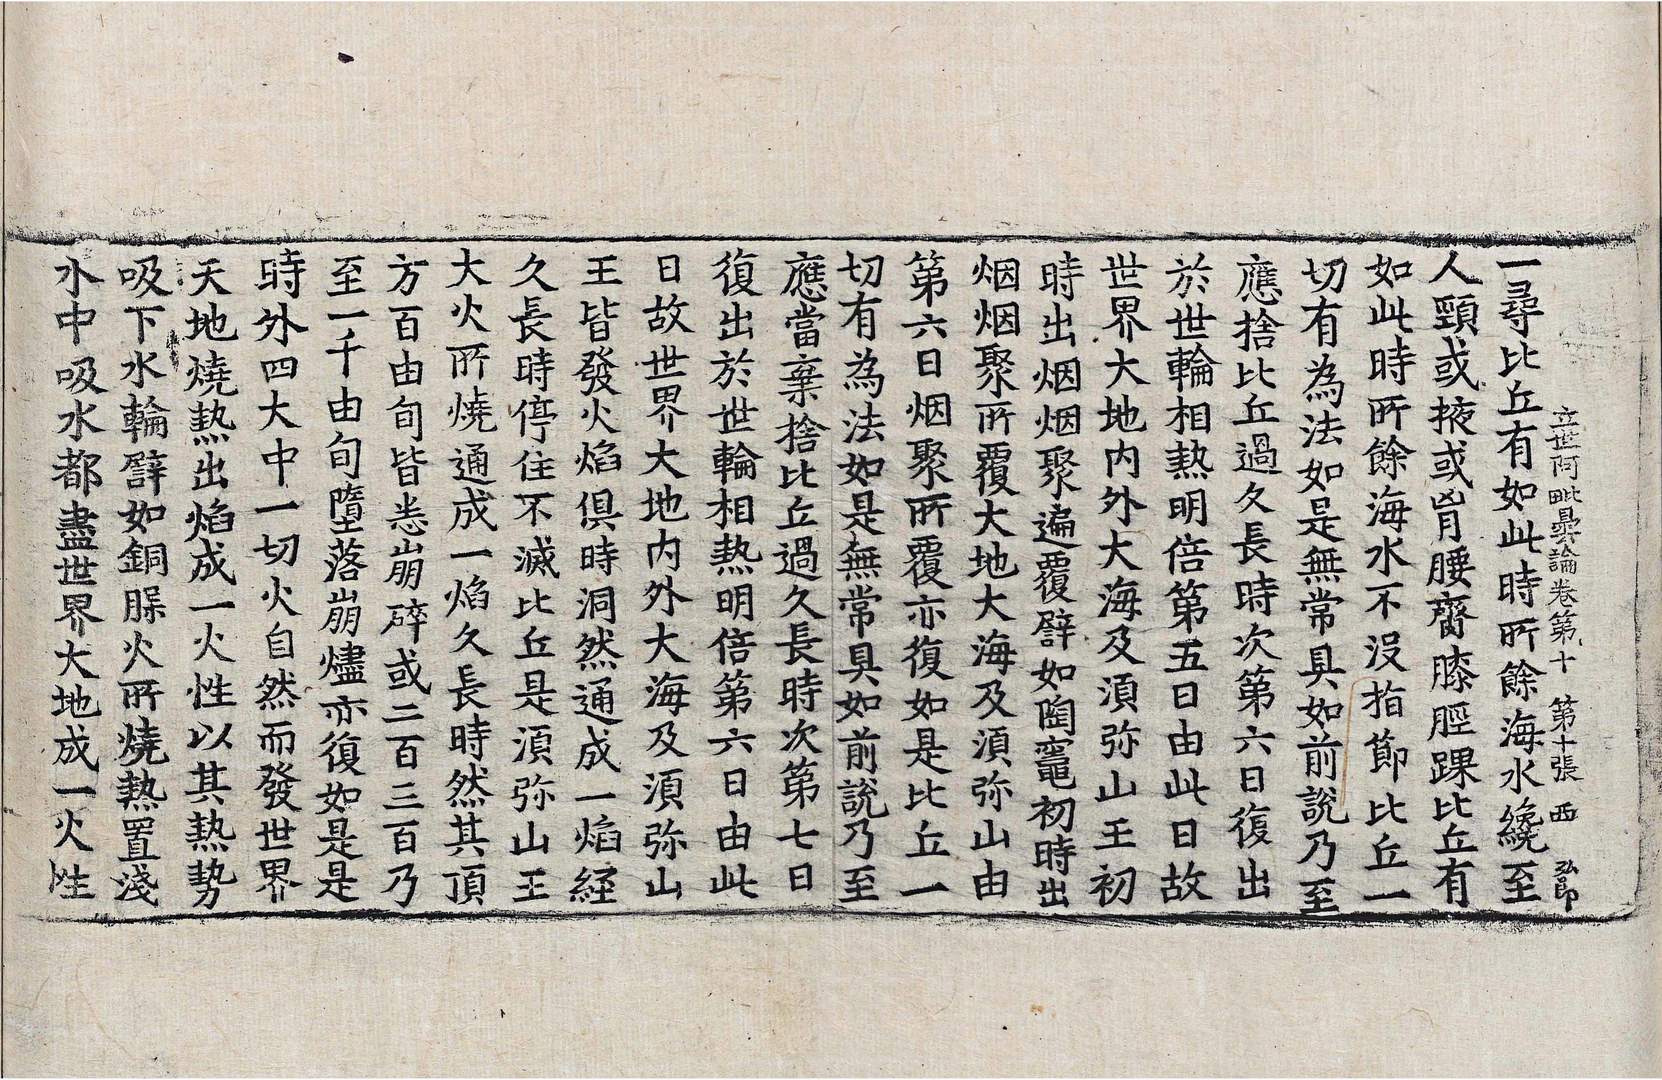 立世阿毗曇論卷第十 第十張 西 弘郎
一尋比丘有如此時所餘海水繞至
人頸或掖或𮌎腰齊膝脛踝比丘有
如此時所餘海水不沒指節比丘一
切有為法如是無常具如前說乃至
應捨比丘過久長時次第六日復出
於世輪相熱明倍第五日由此日故
世界大地内外大海及須弥山王初
時出烟烟聚遍覆譬如陶竈初時出
烟烟聚所覆大地大海及須弥山由
第六日烟聚所覆亦復如是比丘一
切有為法如是無常具如前說乃至
應當棄捨比丘過久長時次第七日
復出於世輪相熱明倍第六日由此
日故世界大地内外大海及須弥山
王皆發火焰俱時洞然通成一焰経
久長時停住不滅比丘是須弥山王
大火所燒通成一焰久長時然其頂
方百由旬皆悉崩碎或二百三百乃
至一千由旬墮落崩燼亦復如是是
時外四大中一切火自然而發世界
天地燒熱出焰成一火性以其熱勢
吸下水輪譬如銅𦜳火所燒熱置淺
水中吸水都盡世界大地成一火性